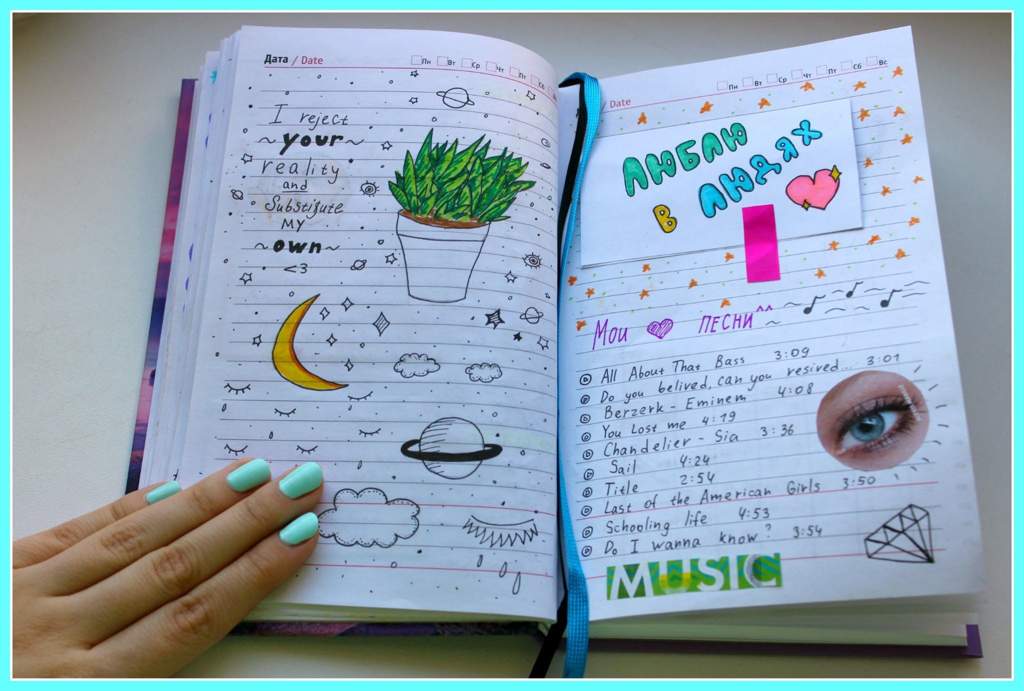 Дата / Date
Пн Вт Ср Чт Пт Сб
I reject
~your~
reality
and
Substitute
MY
~own~
<3
Date
Пн Вт Ср Чт Пт Сб Вс
ЛЮБЛЮ
В ЛЮДЯХ
Мои ПЕСНИ^^
All About That Bass 3:09
Do you belived, can you resired... 3:01
Berzerk - Eminem 4:08
You Lost me 4:19
Chandelier - Sia 3:36
Sail 4:24
Title 2:54
Last of the American Girls 3:50
Schooling life 4:53
Do I wanna know? 3:54
MUSIC